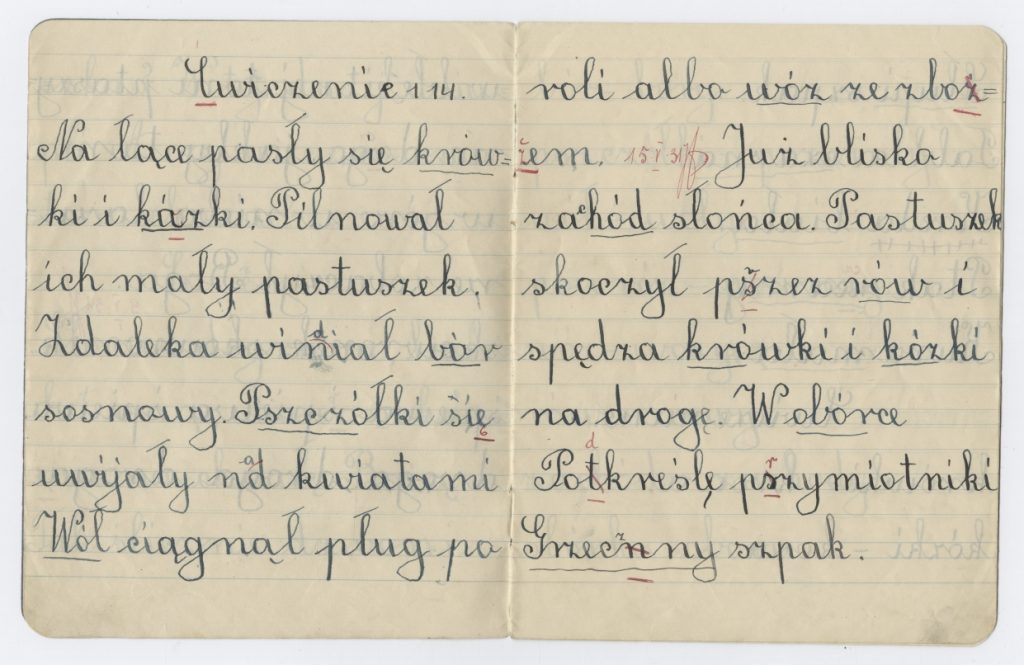 Ćwiczenie 114.
Na łące pasły się krów=
ki i kázki. Pilnował
ich mały pastuszek.
Zdaleka widniał bór
sosnowy. Pszczółki się
uwijały nad kwiatami
Wół ciągnął pług po
roli albo wóz ze zboż=
żem. 15 V 31 Już blisko
zachód słońca. Pastuszek
skoczył pszez rów i
spędza krówki i kózki
na drogę. W obórce
Potkreślę pszymiotniki
Grzecznny szpak.